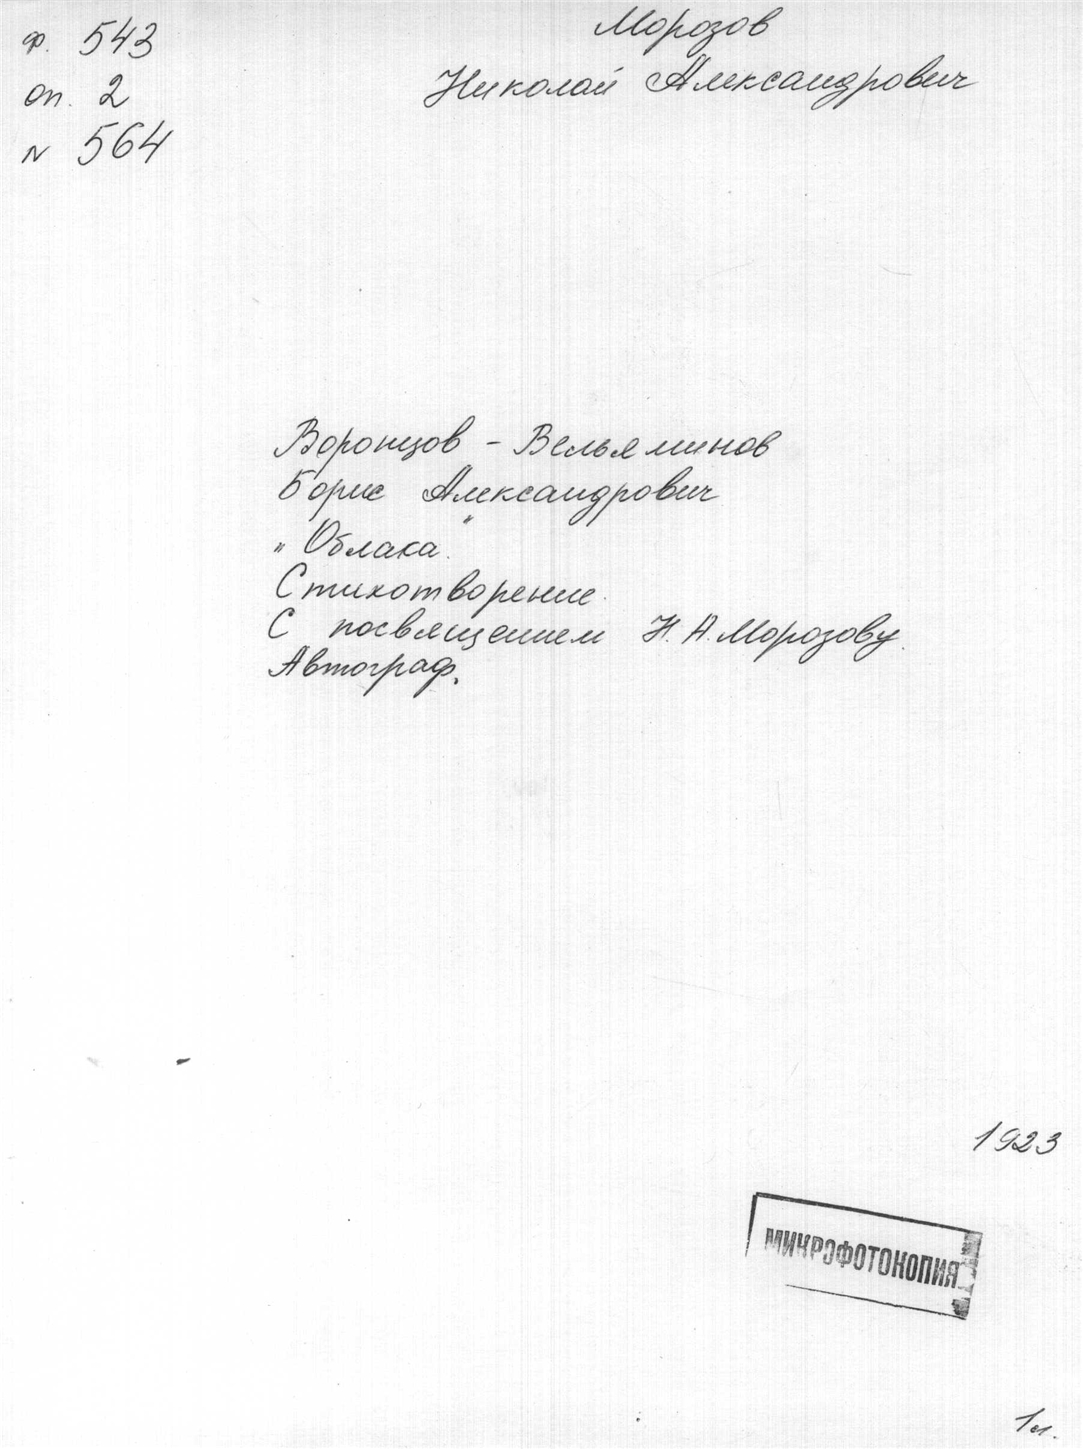 ф. 543
оп. 2
N 564
Морозов
Николай Александрович
Воронцов - Вельяминов
Борис Александрович
"Облака".
Стихотворение.
С посвящением Н. А. Морозову.
Автограф.
1923
МИКРОФОТОКОПИЯ
1 л.